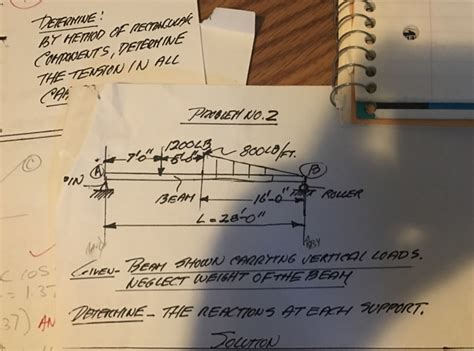 DETERMINE:
BY METHOD OF RECTANGULAR
COMPONENTS, DETERMINE
THE TENSION IN ALL
PROBLEM NO. 2
1200LB
800LB/FT.
7'-0"
A
B
BEAM
16'-0"
ROLLER
L = 28'-0"
GIVEN - BEAM SHOWN CARRYING VERTICAL LOADS.
NEGLECT WEIGHT OF THE BEAM
DETERMINE - THE REACTIONS AT EACH SUPPORT.
SOLUTION
105
= 1.37
37) AN